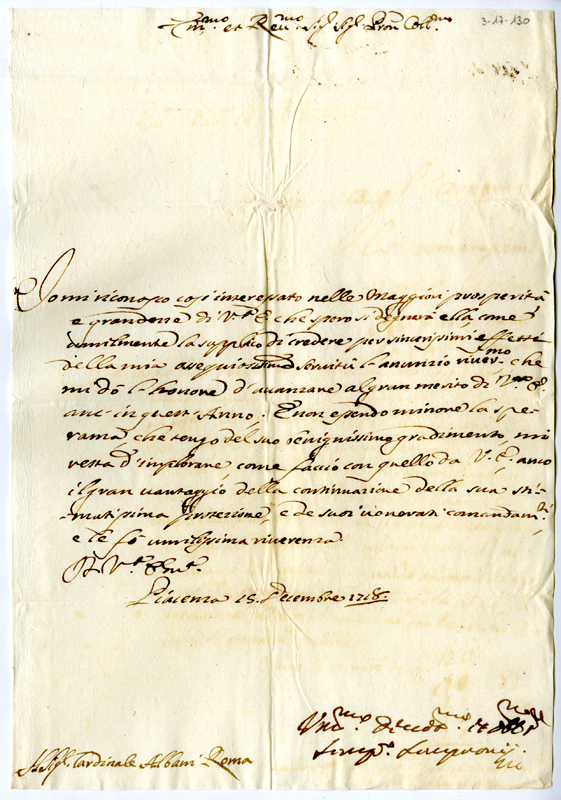 3-17-130
Em.mo et Rev.mo Sig.r Sig.r Pron Coll.mo
Io mi riconosco così interessato nelle Maggiori prosperità
e grandezze di V.ra E. che spero si degnerà ella, come
umilmente la supplico di credere per sincerissimi effetti
della mia ossequiosissima servitù l'anunzio river.mo che
mi dò l'honore d'avanzare al gran merito di V.ra E.
anc- in quest'Anno. E non essendo minore la spe-
ranza che tengo del suo benignissimo gradimento, mi
resta d'implorare come faccio con quello da V. E. anco
il gran vantaggio della continuazione della sua sti-
matissima protezione, e de suoi venerati comandam.ti
e le fò umilissima riverenza.
Di V.ra Em.za
Piacenza 15. Decembre 1718.
Um.mo Divot.mo et Obl
S. Sig.r Cardinale Albani- Roma